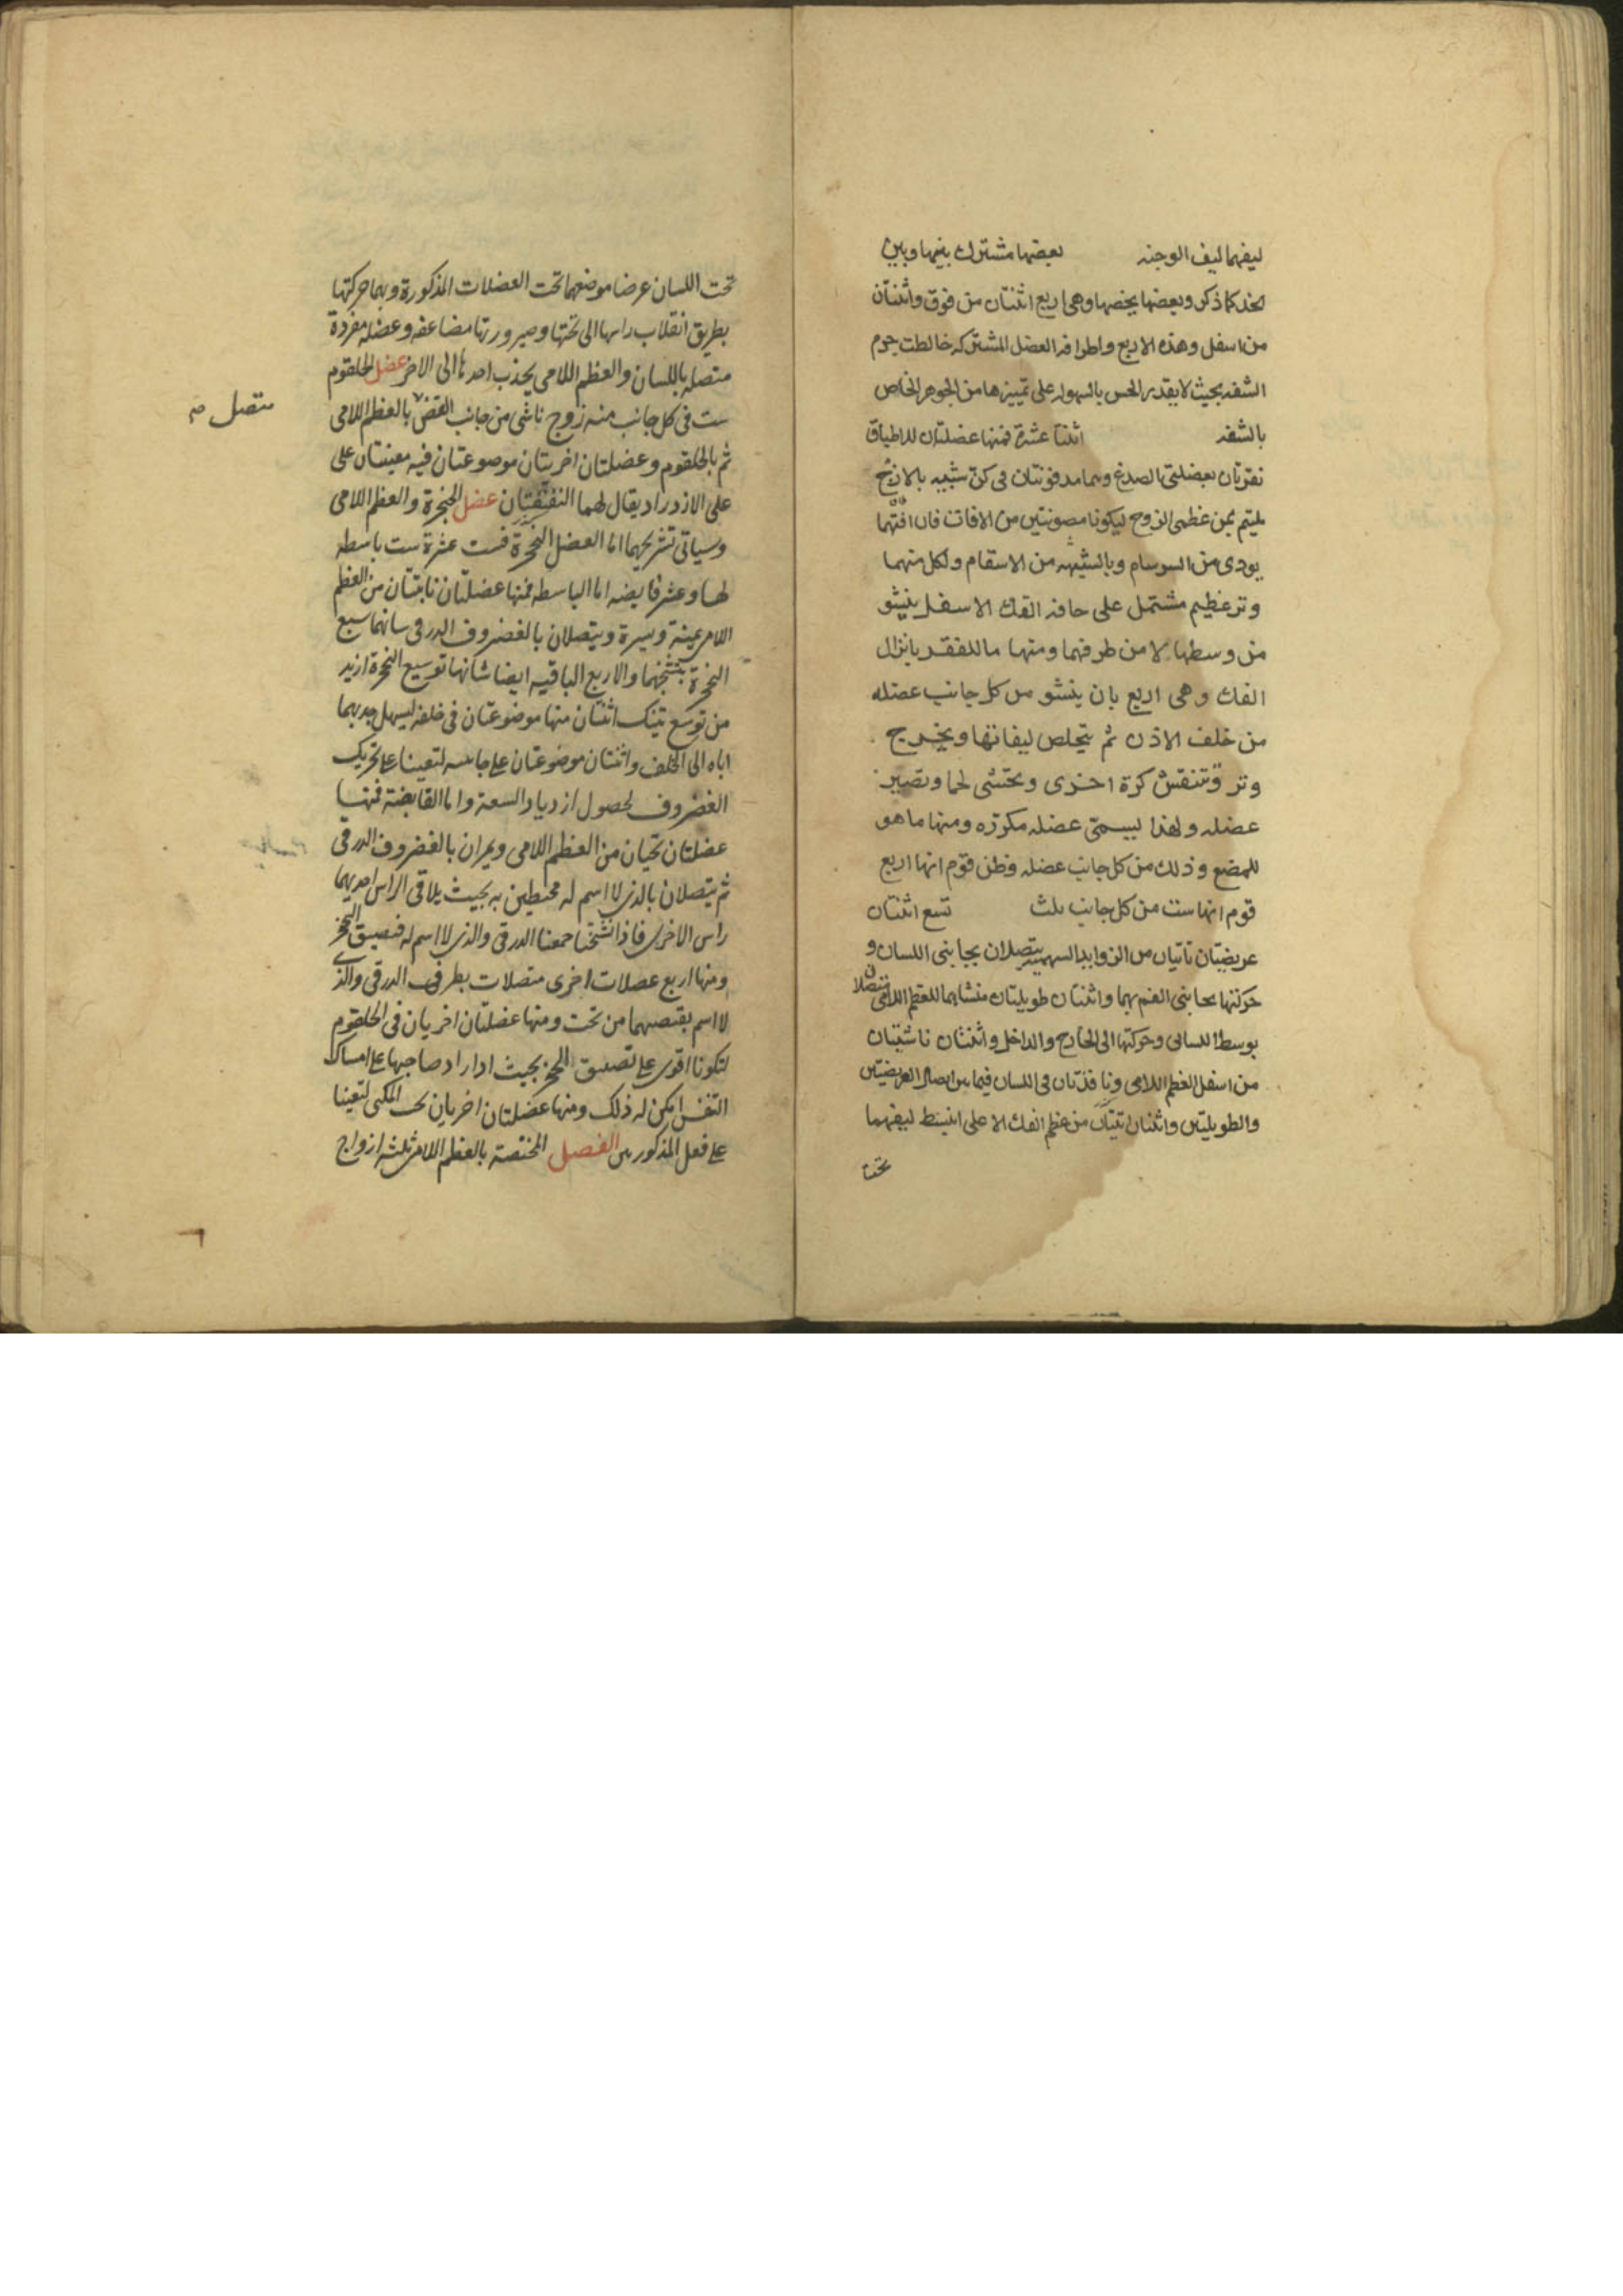 ليفهما ليف الوجنه بعضها مشترك بينها وبين
الخد كما ذكر وبعضها يخصها وهى اربع اثنتان من فوق واثنتان
من اسفل وهذه الاربع واطرافه العضل المشتركه خالطت جرم
الشفه بحيث لا يقدر الحس بالسهوله على تمييزها من الجوهر الخاص
بالشفه اثنتا عشرة فمنها عضلتان للاطباق
تعرفان بعضلتى الصدغ وهما مدفونتان فى كن شبيه بالازج
يلتيم من عظمى الزوج ليكونا مصونتين من الافات فان افتهما
يودى من السرسام وبالشبيهه من الاسقام ولكل منهما
وتر عظيم مشتمل على حافه الفك الاسفل ينشو
من وسطها لا من طرفهما ومنها ما للفغر بانزال
الفك وهى اربع بان ينشو من كل جانب عضله
من خلف الاذن ثم يتخلص ليفاتها ويخرج
وتر وتنفش كرة اخرى وتحتشى لحما وتصير
عضله ولهذا ليسمى عضله مكرره ومنها ما هو
للمضغ وذلك من كل جانب عضله وظن قوم انها اربع
قوم انها ست من كل جانب ثلث تسع اثنتان
عريضتان تاتيان من الزوايد السهميه يتصلان بجانبى اللسان و
حركتها بجانبى الفم بهما واثنتان طويلتان منشاهما للعظم اللامى يتصلان
بوسط اللسان وحركتها الى الخارج والداخل واثنتان ناشيتان
من اسفل العظم اللامى ونافذتان فى اللسان فيما بين ايصال العريضتين
والطويلتين واثنتان اتيتان من عظم الفك الاعلى انبسط ليفهما
تحت
تحت اللسان عرضا موضعهما تحت العضلات المذكورة وبهما حركتها
بطريق انقلاب راسها الى تحتها وصيرورتها مضاعفه وعضله مفردة
متصله باللسان والعظم اللامى يجذب احدها الى الاخر عضل الحلقوم
ست فى كل جانب منه زوج ناشى من جانب القص بالعظم اللامى
متصل صح
ثم بالحلقوم وعضلتان اخريتان موضوعتان فيه معينتان على
على الازدراد يقال لهما النغنغتان عضل الحنجرة والعظم اللامى
وسياتى تشريحهما اما العضل الحنجرة فست عشرة ست باسطه
لها وعشر قابضه اما الباسطه فمنها عضلتان نابتتان من العظم
اللامى يمينة ويسرة ويتصلان بالغضروف الدرقى سانهما سبع
الحنجرة بتشنجهما والاربع الباقيه ايضا شانها توسيع الحنجرة ازيد
من توسع تينك اثنتان منها موضوعتان فى خلفه ليسهل جذبهما
اياه الى الخلف واثنتان موضوعتان على جانبيه لتعينا على تحريك
الغضروف لحصول ازدياد السعة واما القابضة فمنها
عضلتان تجيان من العظم اللامى ويمران بالغضروف الدرقى
ثم يتصلان بالذى لا اسم له محيطين به بحيث يلاقى الراس احديهما
راس الاخرى فاذا تشنجتا جمعنا الدرقى والذى لا اسم له فضيق الحنجر
ومنها اربع عضلات اخرى متصلات بطرفى الدرقى والذى
لا اسم يقبضهما من تحت ومنها عضلتان اخريان فى الحلقوم
لتكونا اقوى على تضييق الحنجر بحيث اذا اراد صاحبها على امساك
النفس امكن له ذلك ومنها عضلتان اخريان تحت المكبى لتعينا
على فعل المذكورين الفصل المختصة بالعظم اللامى ثلثه ازواج